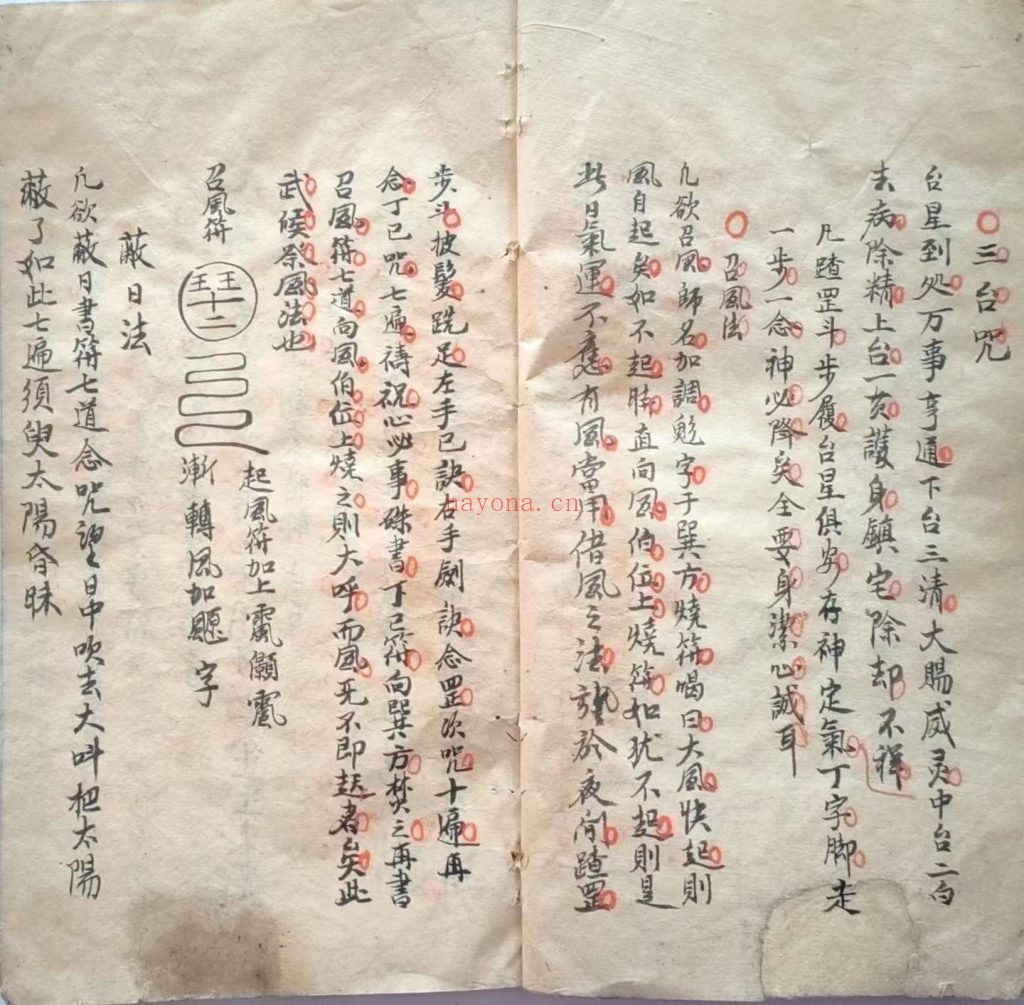 三台咒
台星到処万事亨通下台三清大賜威灵中台二白
去病除精上台一黄護身鎮宅除却不祥
凡踏罡斗步履台星俱安存神定氣丁字脚走
一步一念神必降矣全要身潔心誠耳
召風法
凡欲召風師名加調魁字于巽方燒符喝曰大風快起則
風自起矣如不起脖直向風伯位上燒符如犹不起則是
此日氣運不應有風當用借風之法於夜间踏罡
步斗披髮跣足左手已訣右手劍訣念罡次咒十遍再
念丁巳咒七遍禱祝心必事硃書丁巳符向巽方焚之再書
召風符七道向風伯位上燒之則大呼而風死不即起者矣此
武候祭風法也
召風符
王王
十二
起風符加上靊顱霻
漸轉風加颺字
蔽日法
凡欲蔽日書符七道念咒望日中吹去大叫把太陽
蔽了如此七遍須臾太陽昏昧
nayona.cn